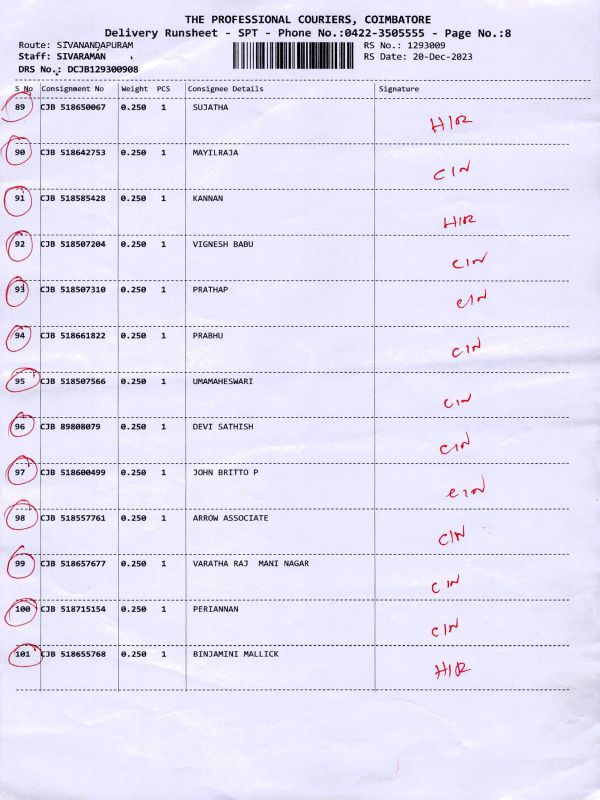 THE PROFESSIONAL COURIERS, COIMBATORE
Delivery Runsheet - SPT - Phone No.:0422-3505555 - Page No.:8
Route: SIVANANDAPURAM RS No.: 1293009
Staff: SIVARAMAN RS Date: 20-Dec-2023
DRS No.: DCJB129300908
S No Consignment No Weight PCS Consignee Details Signature
89 CJB 518650067 0.250 1 SUJATHA
H/R
90 CJB 518642753 0.250 1 MAYILRAJA
CIN
91 CJB 518585428 0.250 1 KANNAN
H/R
92 CJB 518507204 0.250 1 VIGNESH BABU
CIN
93 CJB 518507310 0.250 1 PRATHAP
CIN
94 CJB 518661822 0.250 1 PRABHU
CIN
95 CJB 518507566 0.250 1 UMAMAHESWARI
CIN
96 CJB 89808079 0.250 1 DEVI SATHISH
CIN
97 CJB 518600499 0.250 1 JOHN BRITTO P
CIN
98 CJB 518557761 0.250 1 ARROW ASSOCIATE
CIN
99 CJB 518657677 0.250 1 VARATHA RAJ MANI NAGAR
CIN
100 CJB 518715154 0.250 1 PERIANNAN
CIN
101 CJB 518655768 0.250 1 BINJAMINI MALLICK
H/R